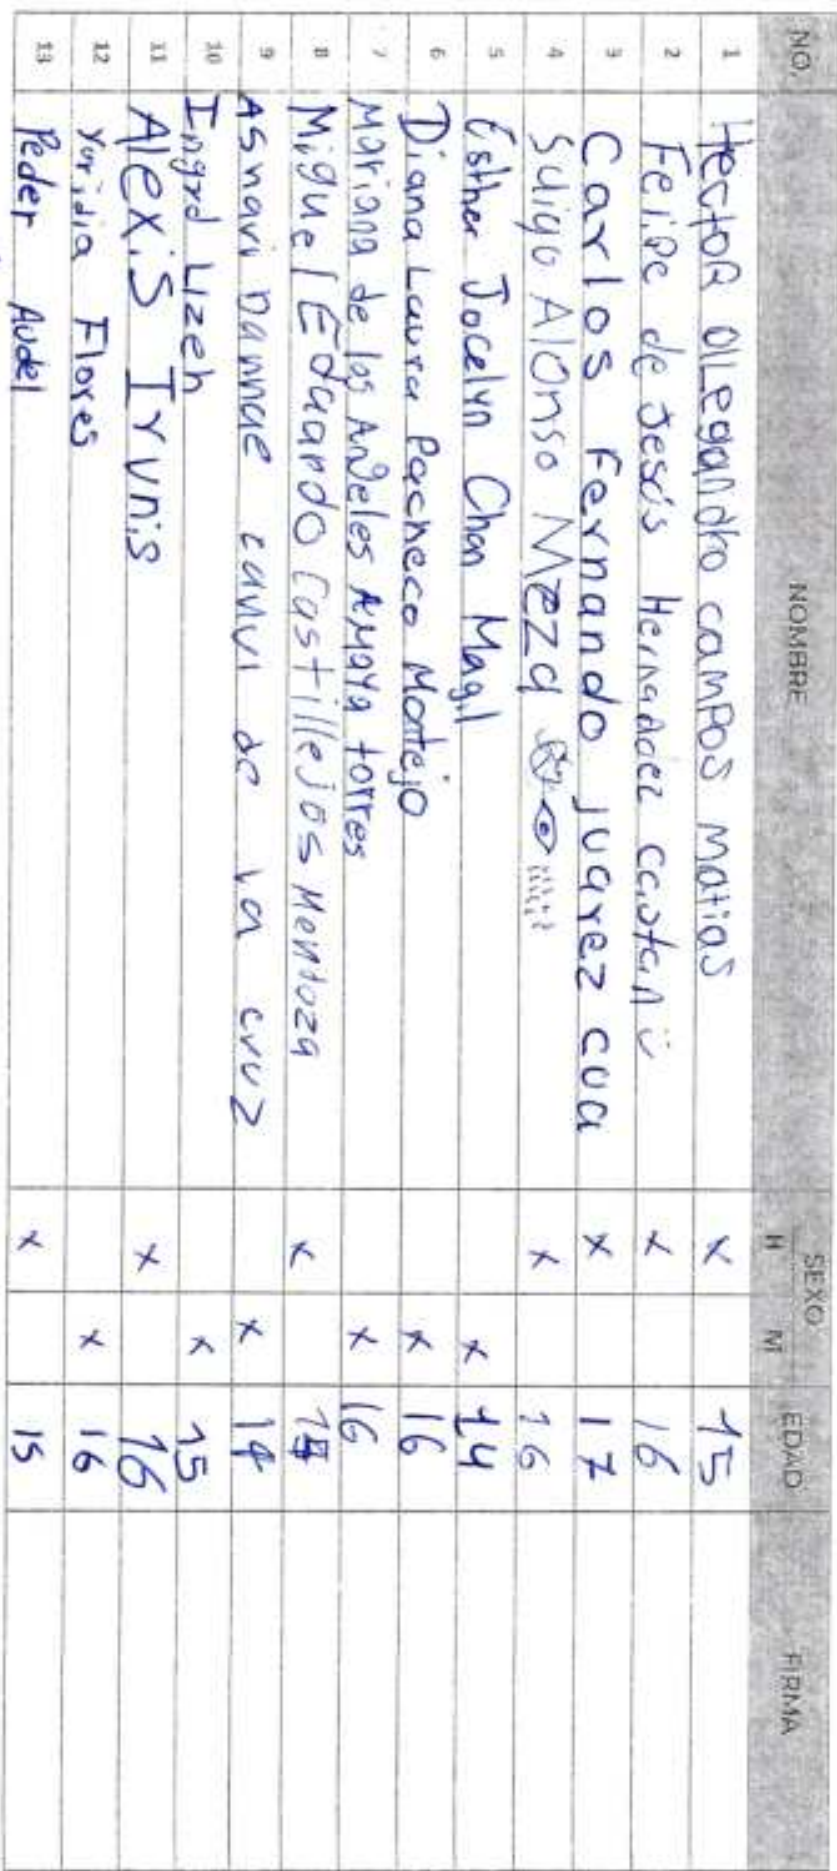 NO. NOMBRE SEXO H M EDAD FIRMA
1 HectoR aLegandro camPos Matias x 15
2 Felipe de Jesús Hernandez x 16
3 Carlos Fernando juarez cua x 17
4 Alonso Meza x 16
5 Esther Jocelyn Chan Magil x 14
6 Diana Laura Pacheco Montejo x 16
7 Mariana de los Angeles Amaya torres x 16
8 Miguel Eduardo Castillejos Mendoza x
9 Asnavi Dannae canui de la cruz x 14
10 Ingrd Lizeh x 15
11 Alexis Irvnis x 16
12 Yuridia Flores x 16
13 Peder Audel x 15